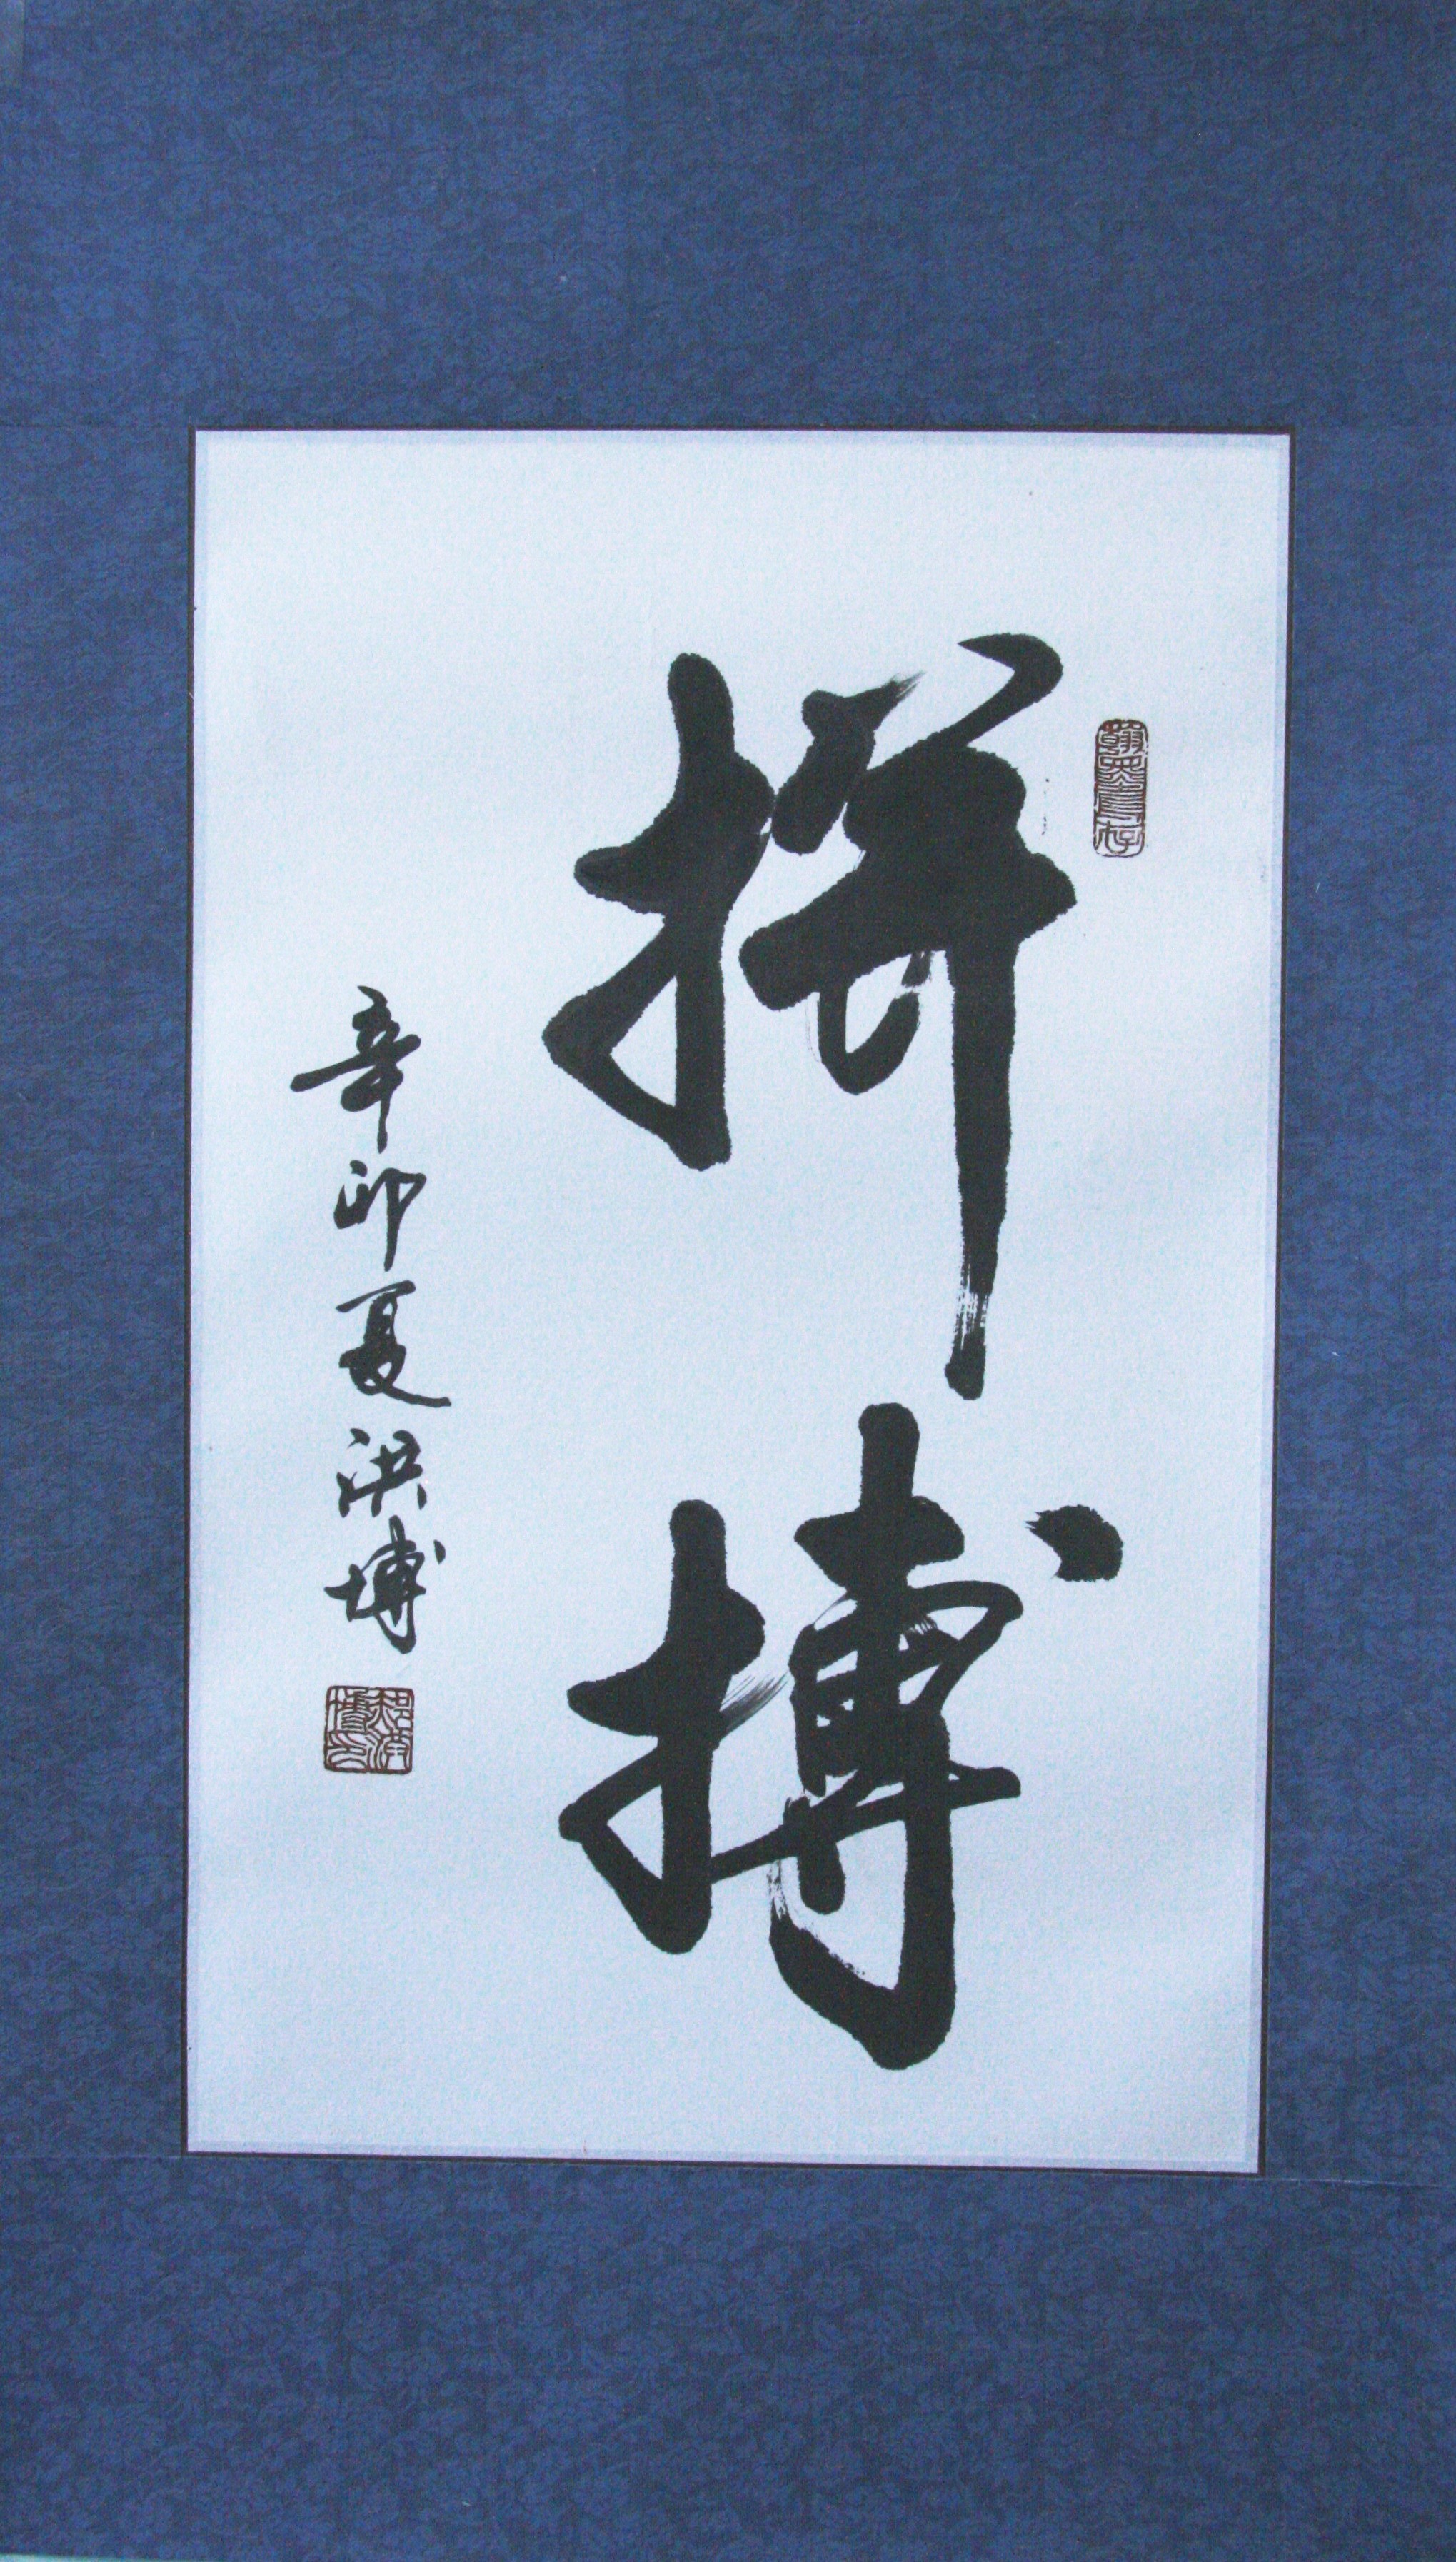 拼搏
辛卯夏洪博